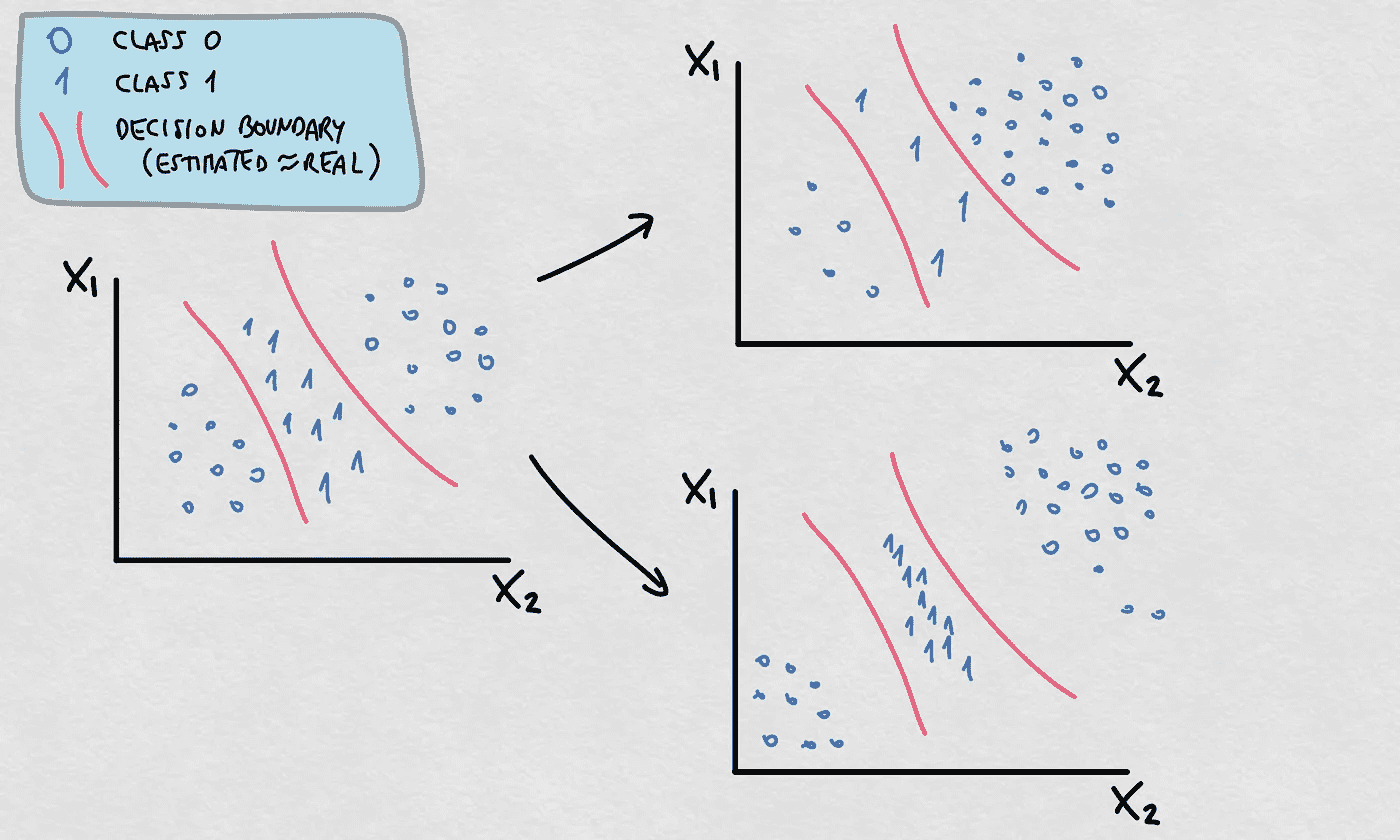 0 CLASS 0
1 CLASS 1
DECISION BOUNDARY
(ESTIMATED ≈ REAL)
X1
X2
X1
X2
X1
X2